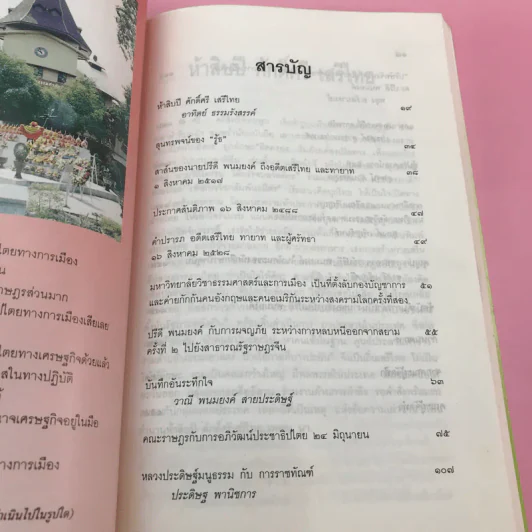 ไตยทางการเมือง
น
าษฎรส่วนมาก
ไตยทางการเมืองเสียเลย
ไตยทางเศรษฐกิจด้วยแล้ว
สในทางปฏิบัติ
าจเศรษฐกิจอยู่ในมือ
างการเมือง
ำเนินไปในรูปใด)
สารบัญ
ห้าสิบปี ศักดิ์ศรี เสรีไทย ๑๙
อาทิตย์ ธรรมรังสรรค์
สุนทรพจน์ของ "รู้ธ" ๓๔
สาส์นของนายปรีดี พนมยงค์ ถึงอดีตเสรีไทย และทายาท ๓๘
๑ สิงหาคม ๒๕๑๗
ประกาศสันติภาพ ๑๖ สิงหาคม ๒๔๘๘ ๔๗
คำปรารภ อดีตเสรีไทย ทายาท และผู้ศรัทธา ๔๙
๑๖ สิงหาคม ๒๕๒๘
มหาวิทยาลัยวิชาธรรมศาสตร์และการเมือง เป็นที่ตั้งลับกองบัญชาการ ๕๑
และค่ายกักกันคนอังกฤษและคนอเมริกันระหว่างสงครามโลกครั้งที่สอง
ปรีดี พนมยงค์ กับการผจญภัย ระหว่างการหลบหนีออกจากสยาม ๕๕
ครั้งที่ ๒ ไปยังสาธารณรัฐราษฎรจีน
บันทึกอันระทึกใจ ๖๓
วาณี พนมยงค์ สายประดิษฐ์
คณะราษฎรกับการอภิวัฒน์ประชาธิปไตย ๒๔ มิถุนายน ๗๕
หลวงประดิษฐ์มนูธรรม กับ การราชทัณฑ์ ๑๐๗
ประดิษฐ พานิชการ